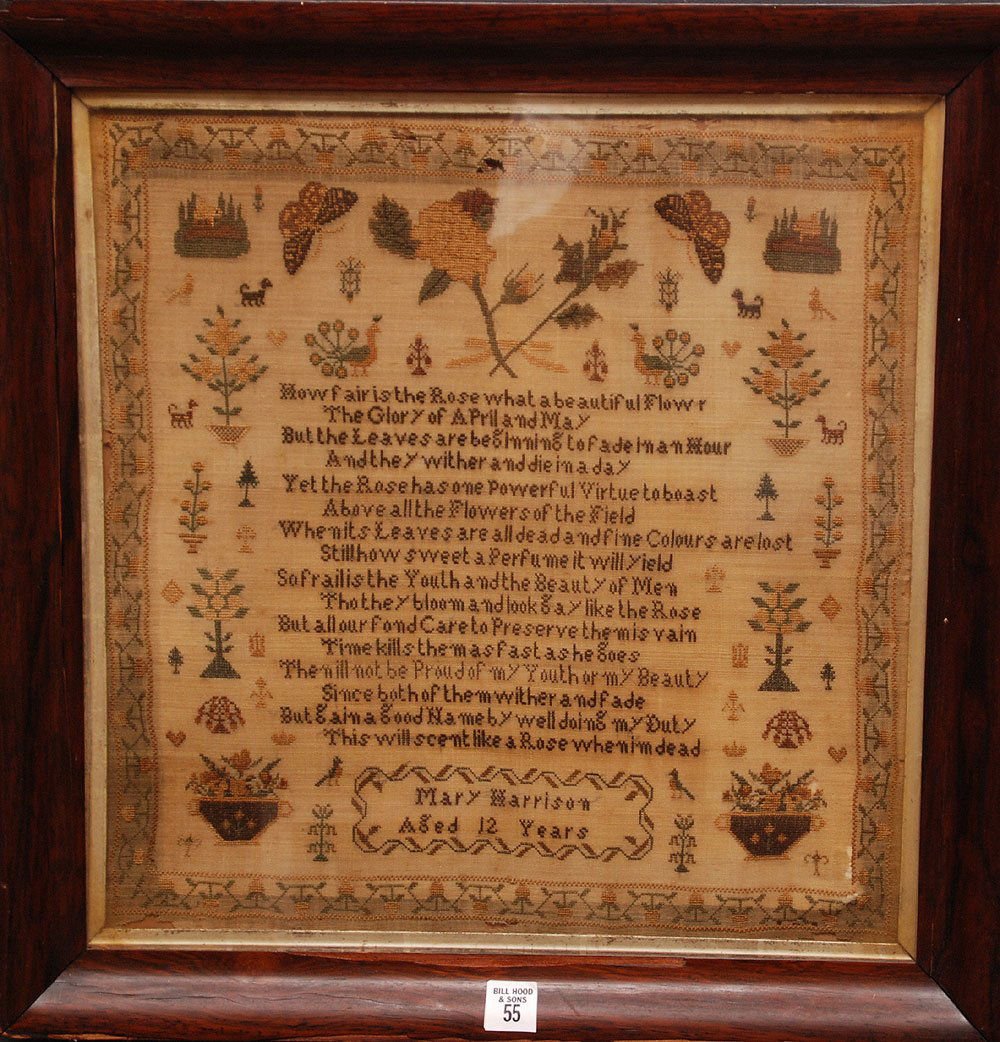 How fair is the Rose what a beautiful Flowr
The Glory of April and May
But the Leaves are beginning to fade in an Hour
And they wither and die in a day
Yet the Rose has one powerful Virtue to boast
Above all the Flowers of the Field
When its Leaves are all dead and fine Colours are lost
Still how sweet a Perfume it will yield
So frail is the Youth and the Beauty of Men
Tho they bloom and look gay like the Rose
But all our fond Care to Preserve them is vain
Time kills them as fast as he goes
Then ill not be Proud of my Youth or my Beauty
Since both of them wither and fade
But gain a good Name by well doing my Duty
This will scent like a Rose when im dead
Mary Harrison
Aged 12 Years
BILL HOOD
& SONS
55